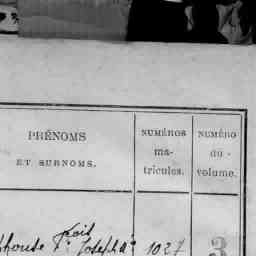 PRÉNOMS
ET SURNOMS.
NUMÉROS
ma-
tricules.
NUMÉRO
du
volume.
çois
phonse F. Joseph 1027 3